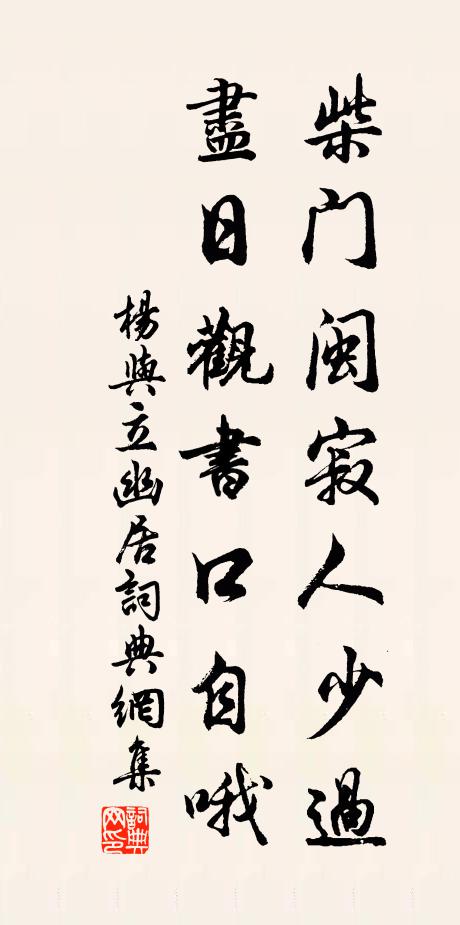 柴门闽寂人少過
盡日觀書口自哦
楊與立幽居詞典網集
詞典
网印